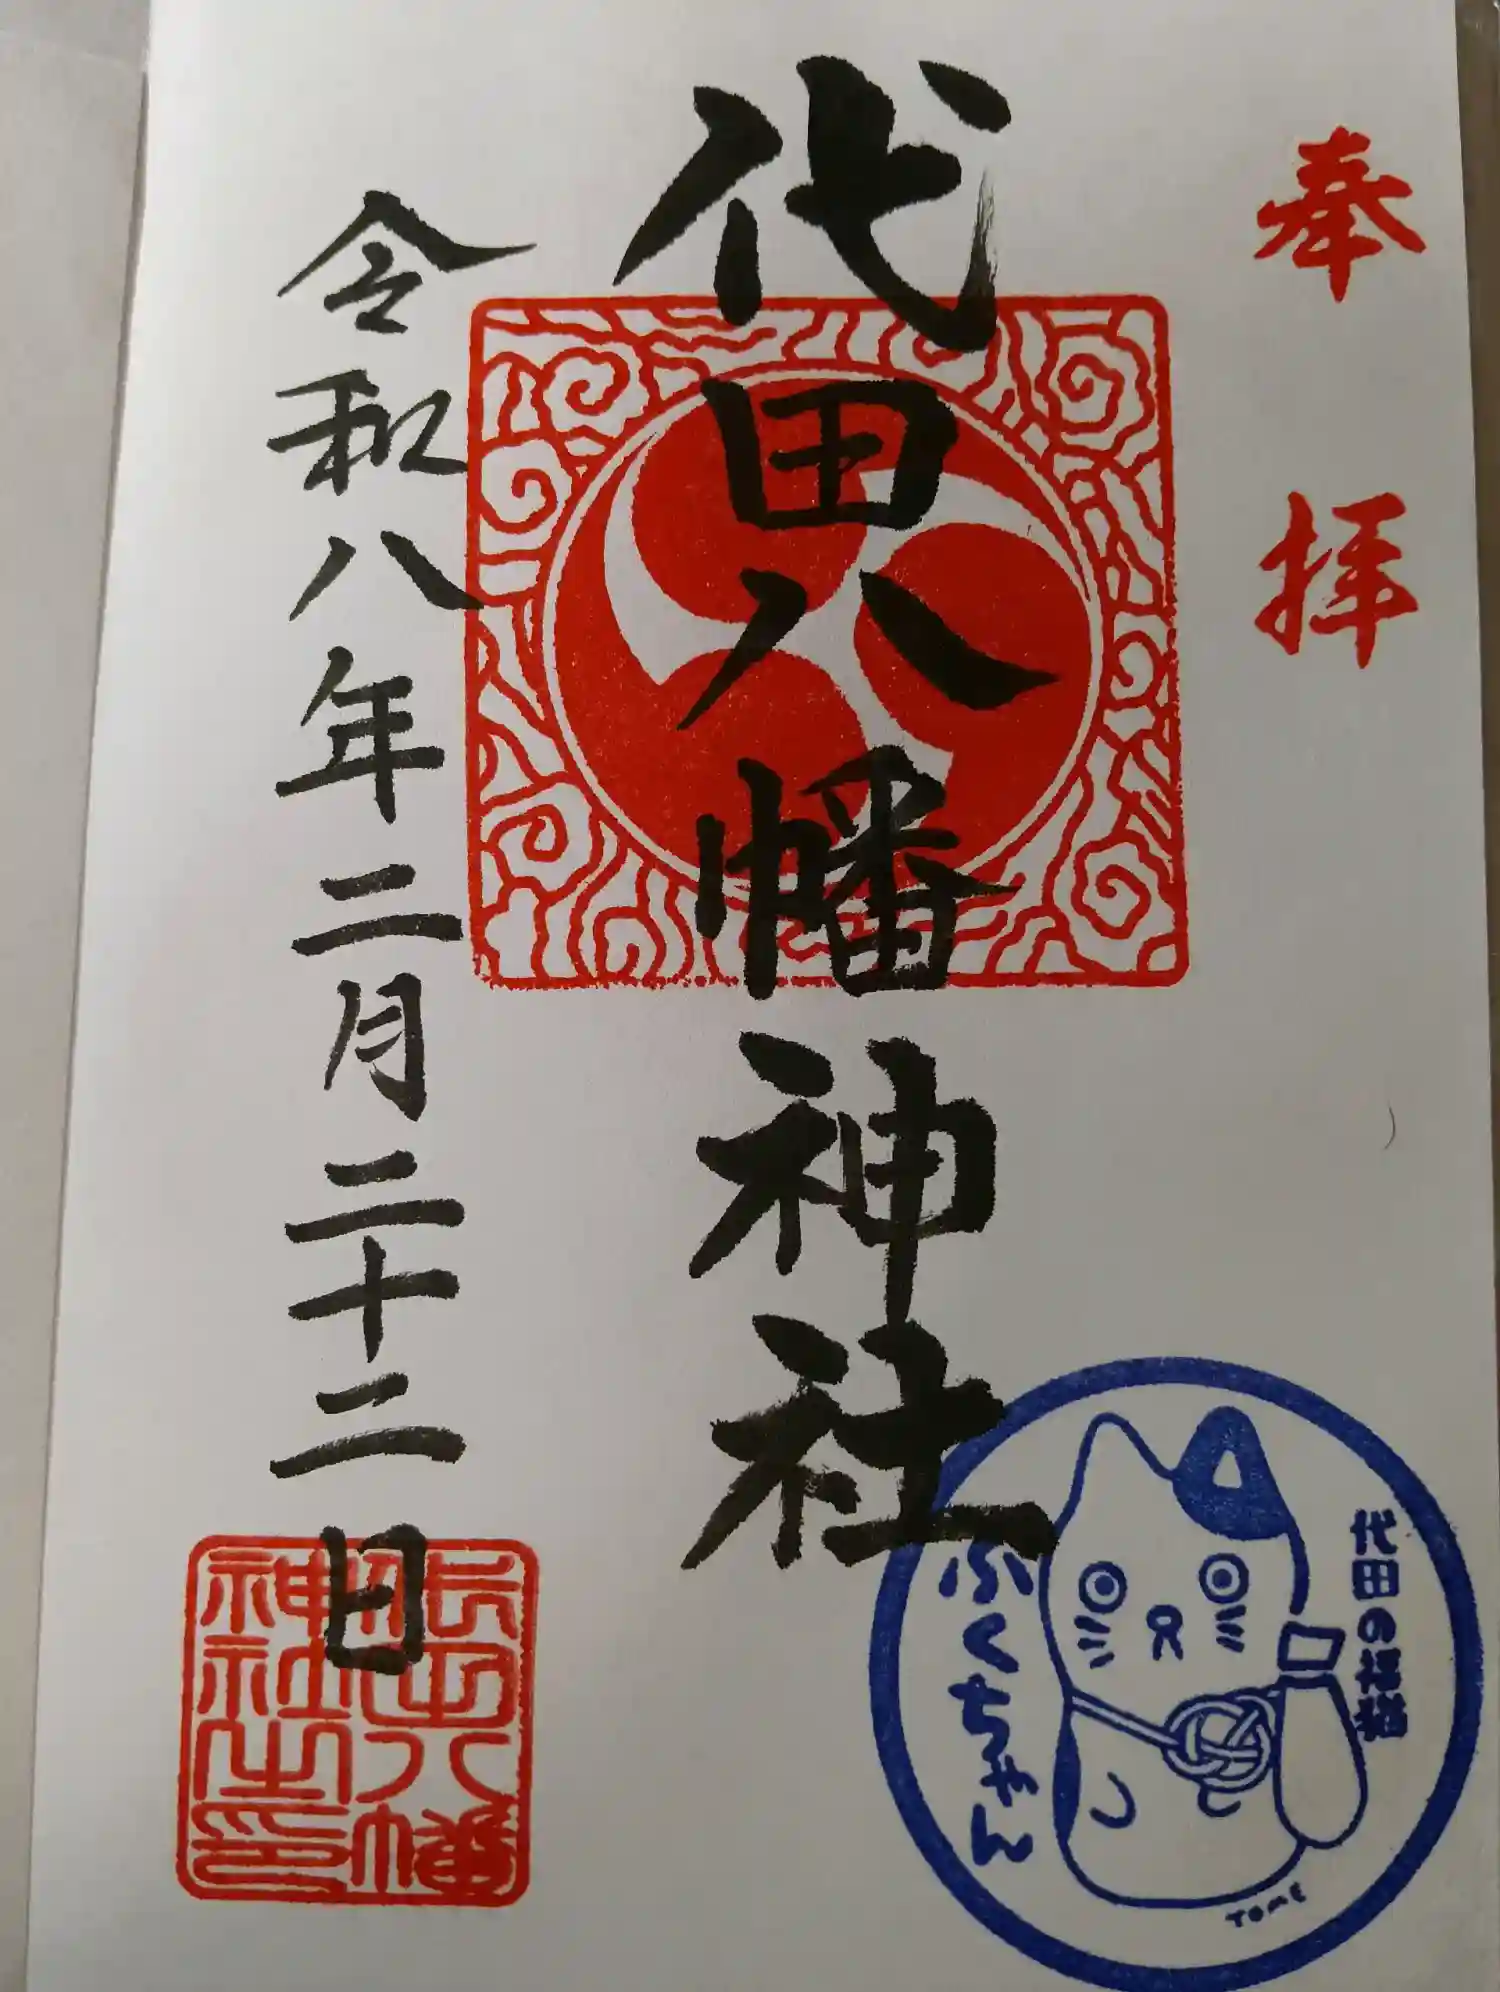 奉拝
代田八幡神社
令和八年二月二十二日
代田八幡
神社之印
代田の福猫
ふくちゃん
TOME